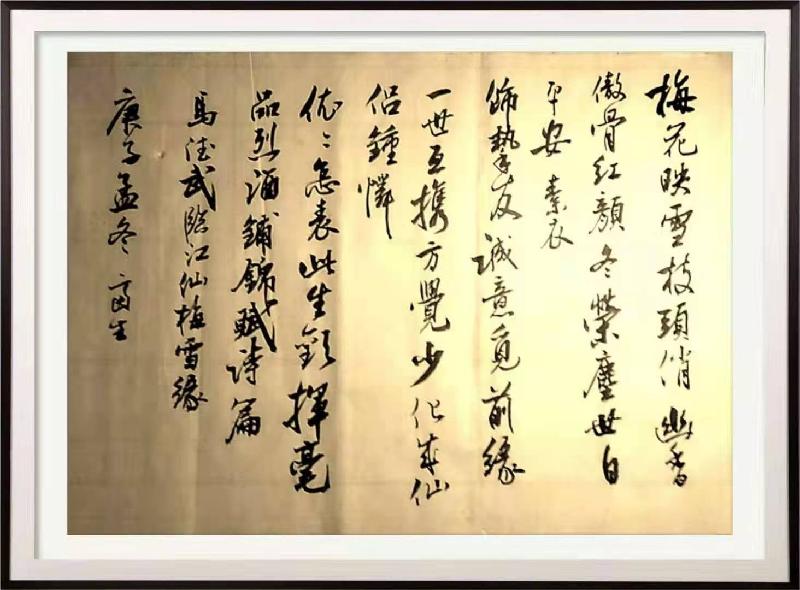 梅花映雪枝頭俏幽香
傲骨紅顏冬榮塵世自
平安 素衣
飾摯友誠意覓前緣
一世互携方覺少化成仙
侣鍾憐
依〻怎表此生歡揮毫
品烈酒鋪錦賦诗篇
馬德武臨江仙梅雪緣
庚子孟冬